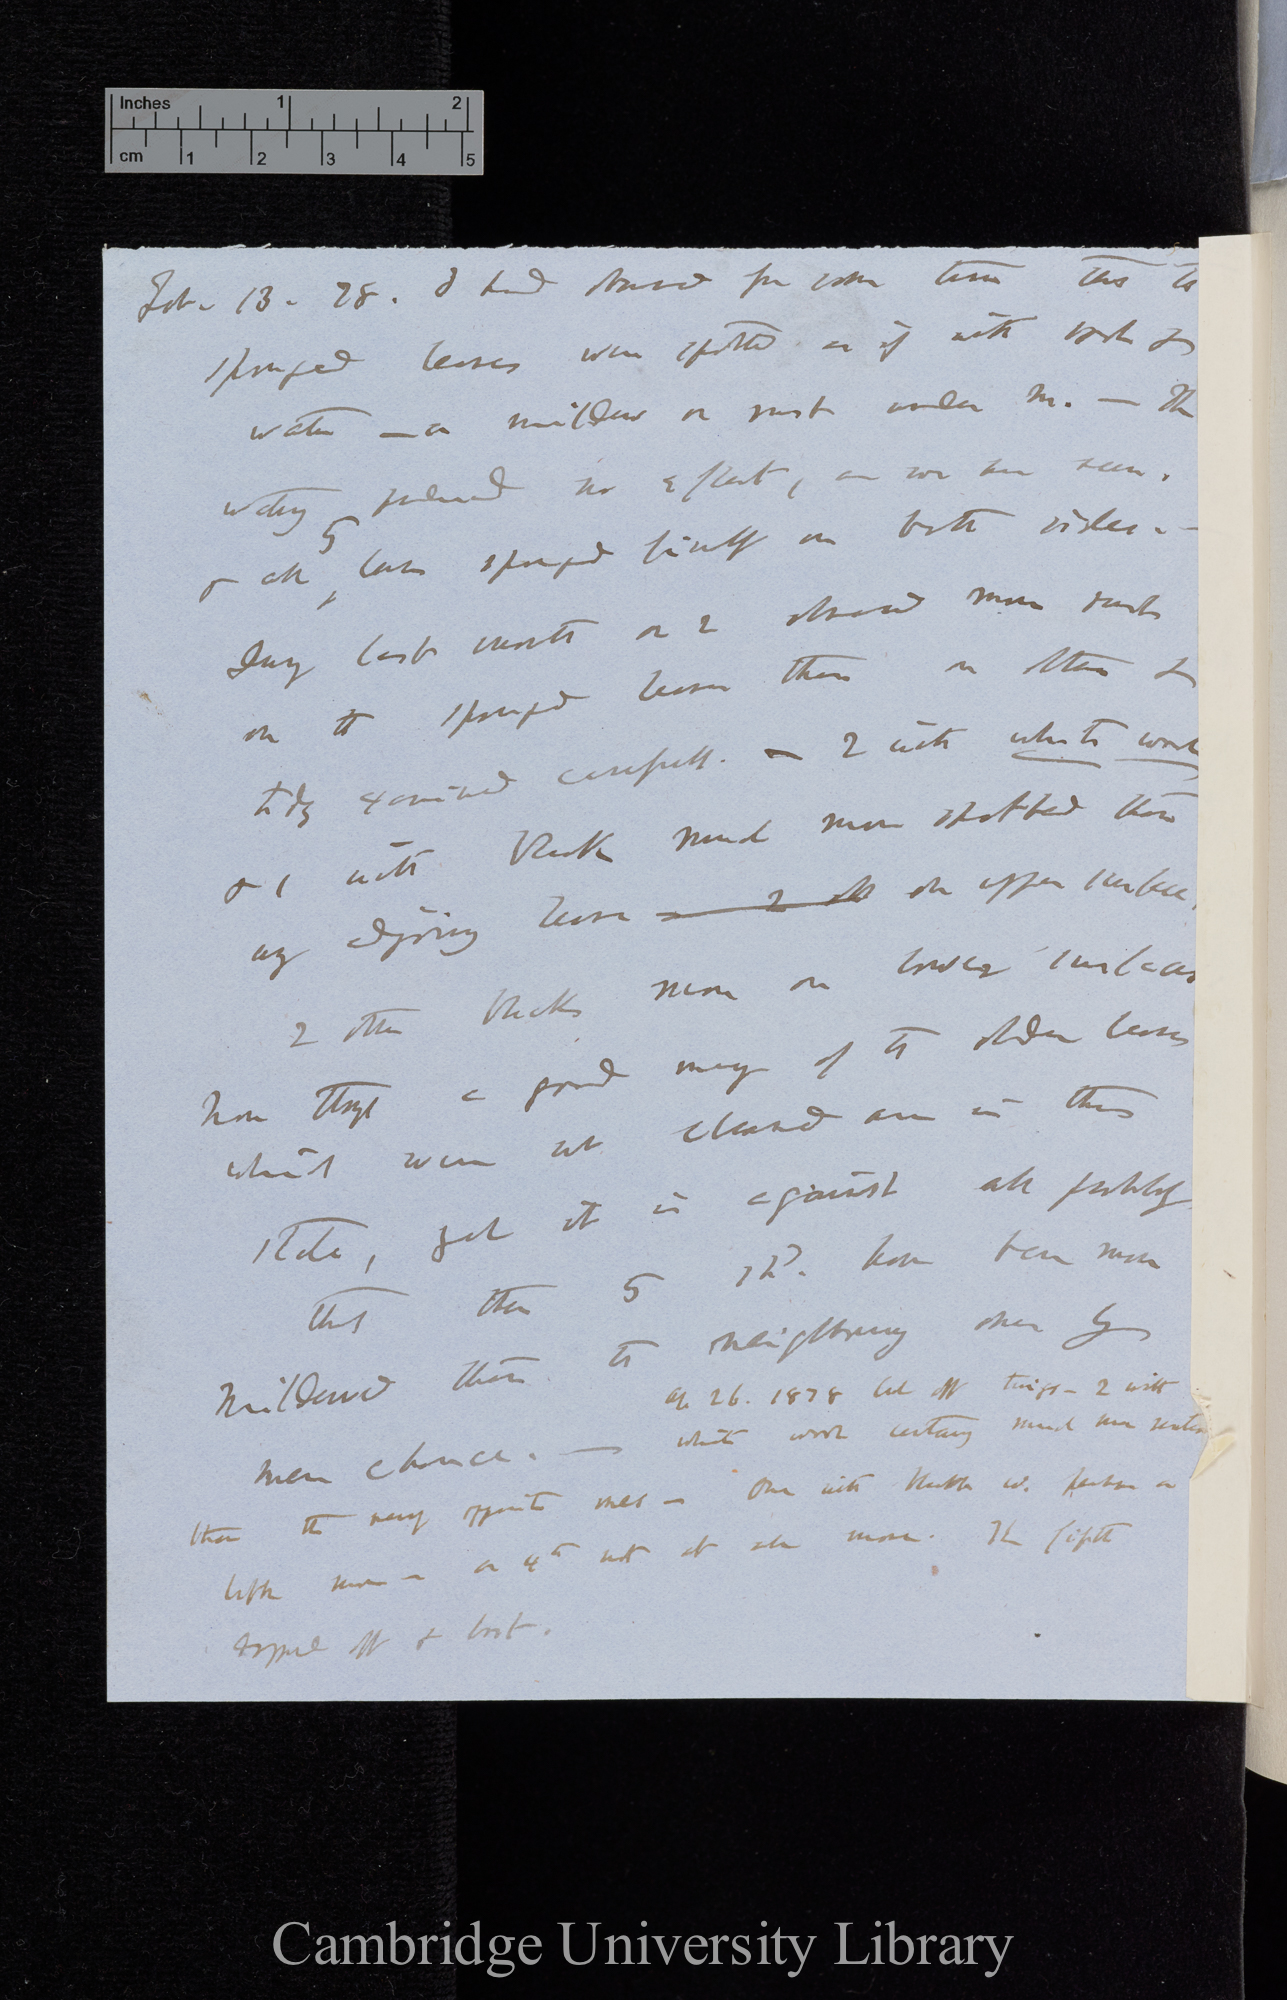 Inches 1 2
cm 1 2 3 4 5
Feb. 13 - 78. I had observed for some time that the
sponged leaves were spotted as if with
water — a mildew or rust under m. — The
watery produced no effect, as we have seen.
& all 5 leaves sponged himself on both sides —
During last month or 2 observed more rust
on the sponged leaves than on others &
to-day examined carefully. — 2 with white wool
& 1 with black much more spotted than
any adjoining leaves on upper surface,
2 other blacks more on lower surfaces
Now though a good many of the older leaves
which were not cleaned are in this
state, yet it is against all probability
that these 5 shd. have been more
mildewed than the neighbouring ones by
mere chance. —
Ap 26. 1878 cut off twigs — 2 with
white wool certainly much more
than the many opposite ones — One with black w. perhaps a
little more — or 4th not at all more. The fifth
dropped off & lost.
Cambridge University Library